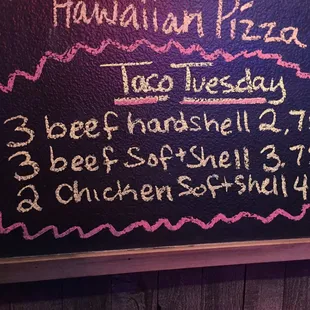 Hawaiian Pizza
Taco Tuesday
3 beef hardshell 2.7
3 beef Soft Shell 3.7
2 Chicken Soft Shell 4